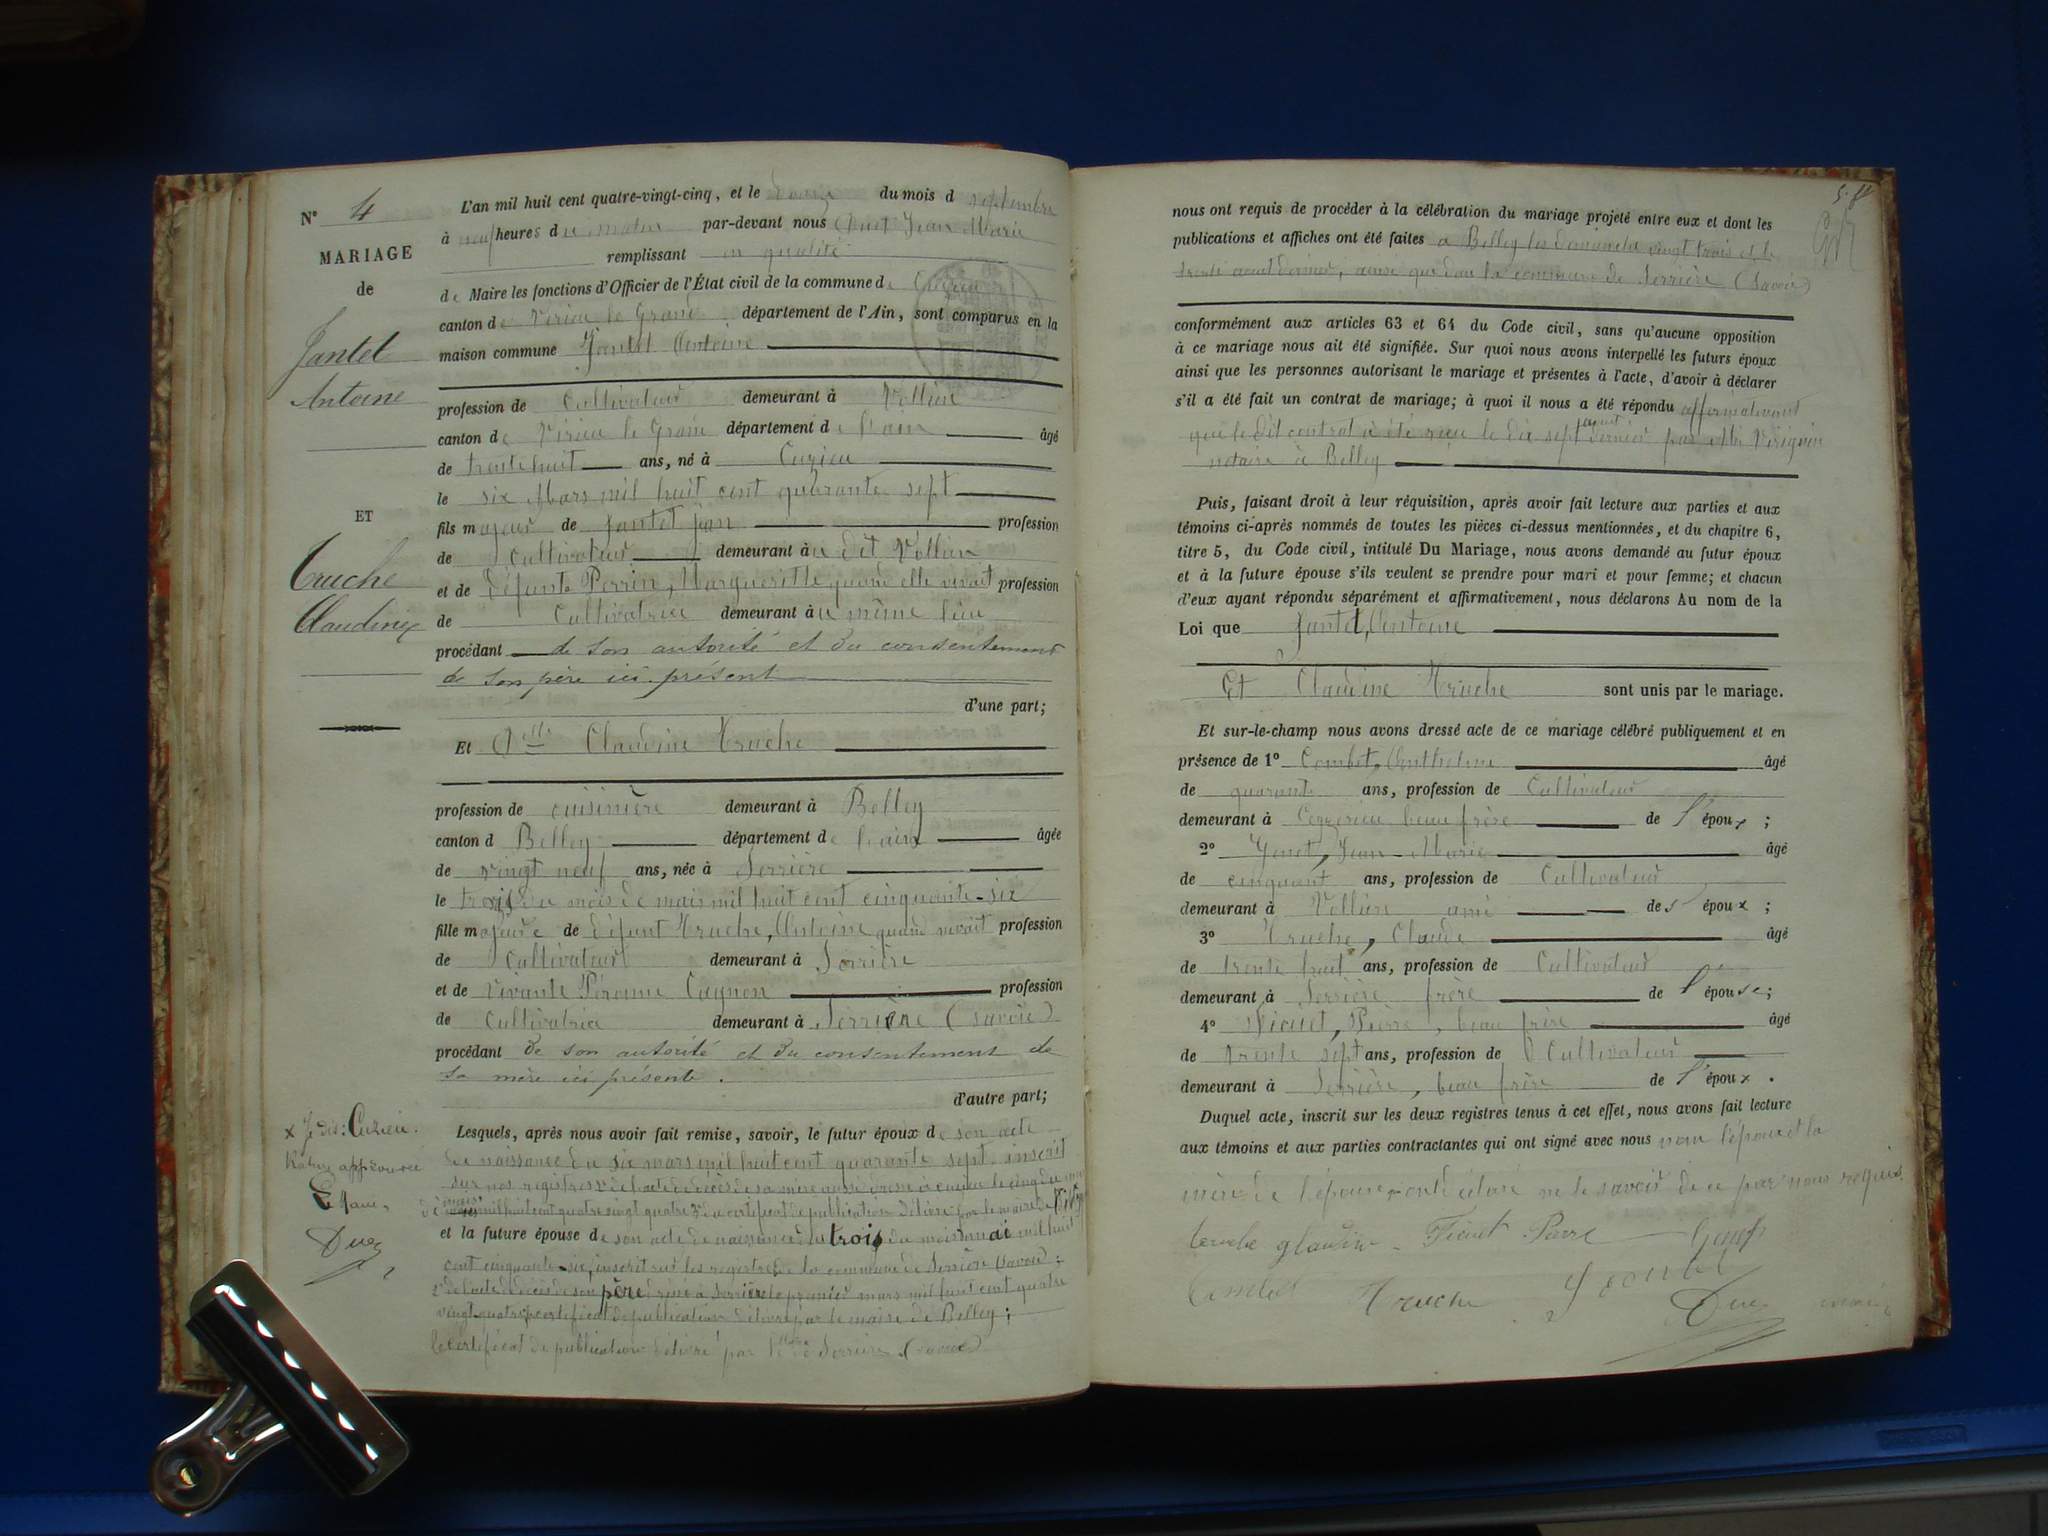 N° 4
MARIAGE
de
Jantet
Antoine
ET
Truche
Claudine
x Je dis: Cuzieu.
Rature approuvée
Le Maire,
Duez
L'an mil huit cent quatre-vingt-cinq, et le douze du mois d septembre
à neuf heures du matin par-devant nous Jean Marie
remplissant en qualité
de Maire les fonctions d'Officier de l'État civil de la commune de Cuzieu
canton de Virieu le Grand département de l'Ain, sont comparus en la
maison commune Jantet Antoine
profession de Cultivateur demeurant à Vollien
canton de Virieu le Grand département de l'ain âgé
de trente huit ans, né à Cuzieu
le six Mars mil huit cent quarante sept
fils majeur de Jantet jean profession
de Cultivateur demeurant au dit Vollien
et de défunte Perrin, Margueritte quand elle vivait profession
de Cultivatrice demeurant au même lieu
procédant de son autorité et du consentement
de son père ici présent
d'une part;
Et Dlle Claudine Truche
profession de cuisinière demeurant à Belley
canton d Belley département de l'ain âgée
de vingt neuf ans, née à Serrière
le trois du mois de mai mil huit cent cinquante-six
fille majeure de défunt Truche, Antoine quand vivait profession
de Cultivateur demeurant à Serrière
et de vivante Péronne Cagnon profession
de Cultivatrice demeurant à Serrière (savoie)
procédant de son autorité et du consentement de
sa mère ici présente.
d'autre part;
Lesquels, après nous avoir fait remise, savoir, le futur époux de son acte
de naissance du six mars mil huit cent quarante sept inscrit
sur nos registres 2° de l'acte de décès de sa mère aussi dressé à cuzieu le cinq du
mil huit cent quatre vingt quatre 3° du certificat de publication délivré par le maire de
et la future épouse de son acte de naissance du trois du mois mai mil huit
cent cinquante-six, inscrit sur les registres de la commune de Serrière (savoie);
2° de l'acte de décès de son père dressé à Serrière le premier mars mil huit cent quatre
vingt quatre certificat de publication délivré par le maire de Belley;
le certificat de publication délivré par le de Serrière (savoie)
58
nous ont requis de procéder à la célébration du mariage projeté entre eux et dont les
publications et affiches ont été faites à Belley les dimanche vingt trois et le
trente aout dernier, ainsi que dans la commune de Serrière (savoie)
conformément aux articles 63 et 64 du Code civil, sans qu'aucune opposition
à ce mariage nous ait été signifiée. Sur quoi nous avons interpellé les futurs époux
ainsi que les personnes autorisant le mariage et présentes à l'acte, d'avoir à déclarer
s'il a été fait un contrat de mariage; à quoi il nous a été répondu affirmativement
que le dit contrat a été reçu le dix sept dernier par Me
notaire à Belley
Puis, faisant droit à leur réquisition, après avoir fait lecture aux parties et aux
témoins ci-après nommés de toutes les pièces ci-dessus mentionnées, et du chapitre 6,
titre 5, du Code civil, intitulé Du Mariage, nous avons demandé au futur époux
et à la future épouse s'ils veulent se prendre pour mari et pour femme; et chacun
d'eux ayant répondu séparément et affirmativement, nous déclarons Au nom de la
Loi que Jantet, Antoine
Et Claudine Truche sont unis par le mariage.
Et sur-le-champ nous avons dressé acte de ce mariage célébré publiquement et en
présence de 1° Combet, Anthelme âgé
de quarante ans, profession de Cultivateur
demeurant à Ceyzerieu beau frère de l'époux;
2° Genet, Jean-Marie âgé
de cinquante ans, profession de Cultivateur
demeurant à Vollien ami des époux;
3° Truche, Claude âgé
de trente huit ans, profession de Cultivateur
demeurant à Serrière frère de l'épouse;
4° Pierre, beau frère âgé
de trente sept ans, profession de Cultivateur
demeurant à Serrière, beau frère de l'époux.
Duquel acte, inscrit sur les deux registres tenus à cet effet, nous avons fait lecture
aux témoins et aux parties contractantes qui ont signé avec nous non l'époux et la
mère de l'épouse ont déclaré ne le savoir de ce par nous requis.
Pierre
Combet Truche Duez